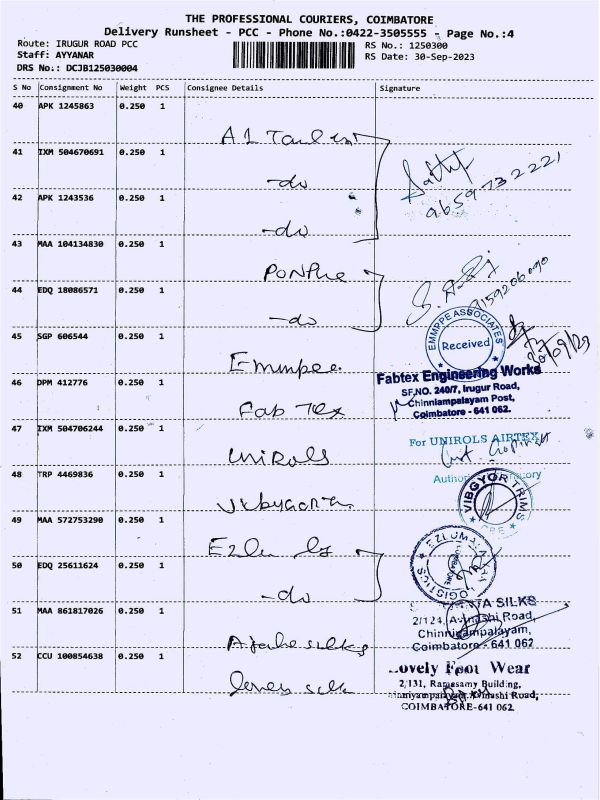 THE PROFESSIONAL COURIERS, COIMBATORE
Delivery Runsheet - PCC - Phone No.:0422-3505555 - Page No.:4
Route: IRUGUR ROAD PCC
RS No.: 1250300
Staff: AYYANAR
RS Date: 30-Sep-2023
DRS No.: DCJB125030004
S No Consignment No Weight PCS Consignee Details Signature
40 APK 1245863 0.250 1
A1
41 IXM 504670691 0.250 1
-do
9659732221
42 APK 1243536 0.250 1
-do
43 MAA 104134830 0.250 1
44 EDQ 18086571 0.250 1
-do
EMMPPE ASSOCIATES
Received
45 SGP 606544 0.250 1
Emmpee.
Fabtex Engineering Works
SF.NO. 240/7, Irugur Road,
Chinniampalayam Post,
Coimbatore - 641 062.
46 DPM 412776 0.250 1
Fab Tex
47 IXM 504706244 0.250 1
For UNIROLS AIRTEX
UNIROLS
48 TRP 4469836 0.250 1
VIBGYOR TRIMS
CBE
49 MAA 572753290 0.250 1
50 EDQ 25611624 0.250 1
LOGISTICS
-do
51 MAA 861817026 0.250 1
SILKS
2/124, Avinashi Road,
Chinnigampalayam,
Coimbatore - 641 062
silks
52 CCU 100854638 0.250 1
Lovely Foot Wear
2/131, Ramasamy Building,
Avinashi Road;
COIMBATORE-641 062.